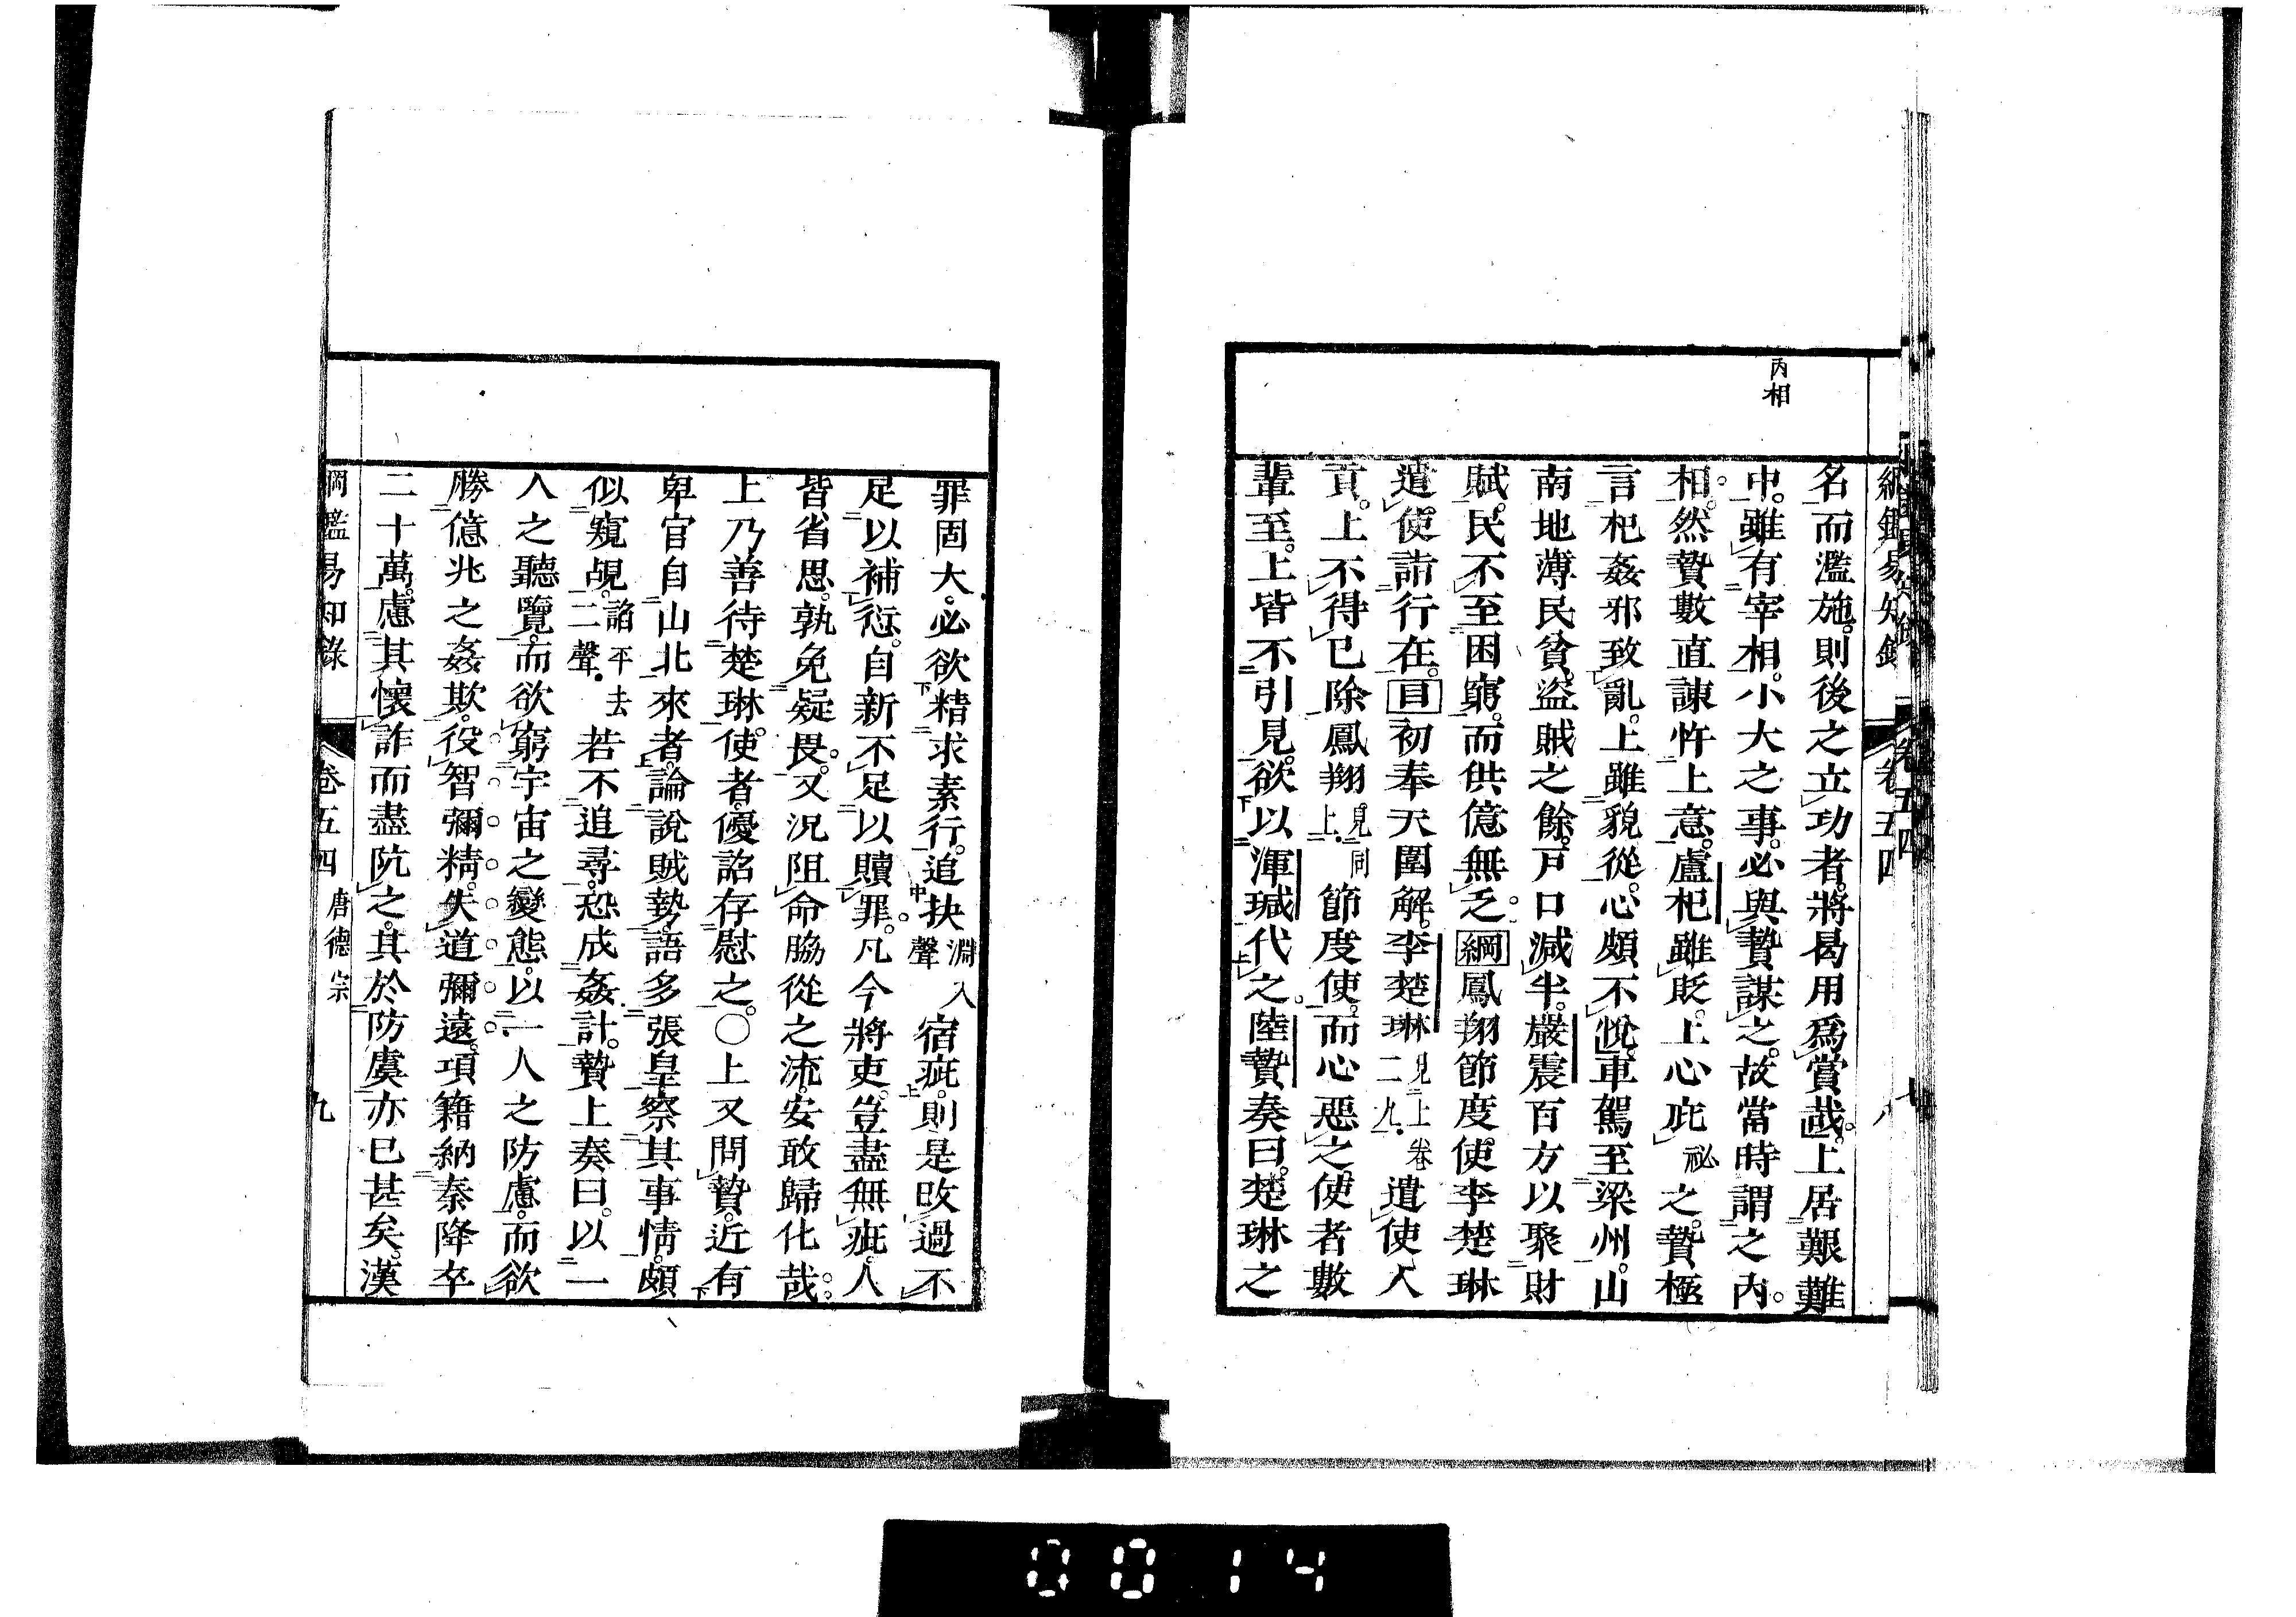 綱鑑易知錄 卷五四 八
內相
名而濫施。則後之立功者。將曷用爲賞哉。上居艱難
中。雖有宰相。小大之事。必與贄謀之。故當時謂之內
相。然贄數直諫忤上意。盧杞雖貶。上心庇祕之。贄極
言杞姦邪致亂。上雖貌從。心頗不悅。車駕至梁州。山
南地薄民貧。盜賊之餘。戶口減半。嚴震百方以聚財
賦。民不至困窮。而供億無乏。綱鳳翔節度使李楚琳
遣使詣行在。目初奉天圍解。李楚琳見上卷二九。遣使入
貢。上不得已除鳳翔見同上。節度使。而心惡之。使者數
輩至。上皆不引見。欲以渾瑊代之。陸贄奏曰。楚琳之
罪固大。必欲精求素行。追抉淵入聲宿疵。則是改過不
足以補愆。自新不足以贖罪。凡今將吏。豈盡無疵。人
皆省思。孰免疑畏。又況阻命脇從之流。安敢歸化哉。
上乃善待楚琳。使者。優詔存慰之。〇上又問贄。近有
卑官自山北來者。論說賊勢。語多張皇。察其事情。頗
似窺覘。諂平去二聲。若不追尋。恐成姦計。贄上奏曰。以一
人之聽覽。而欲窮宇宙之變態。以一人之防慮。而欲
勝億兆之姦欺。役智彌精。失道彌遠。項籍納秦降卒
二十萬。慮其懷詐而盡阬之。其於防虞亦已甚矣。漢
綱鑑易知錄 卷五四 唐德宗 九
0014